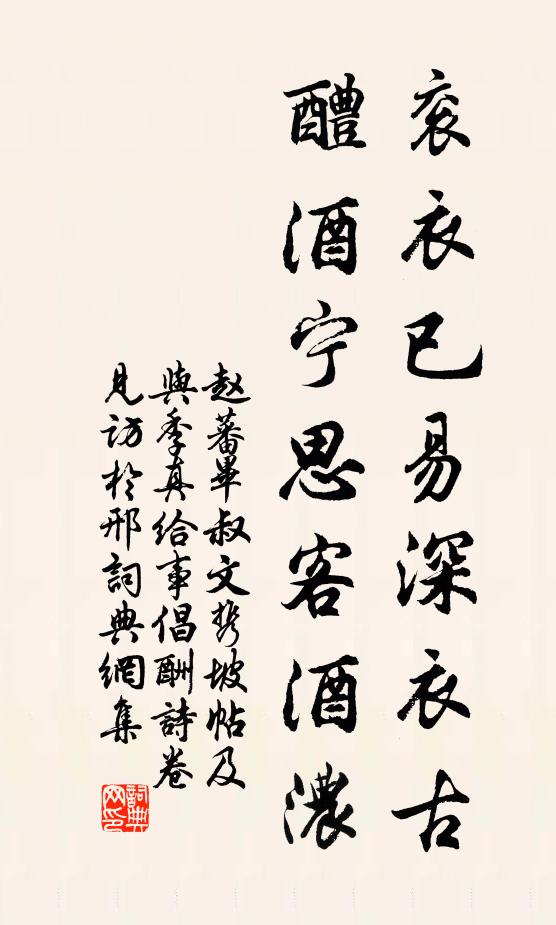 衮衣已易深衣古
醴酒宁思客酒濃
赵蕃畢叔文携坡帖及
與季真给事倡酬詩卷
見訪於邢詞典網集
詞典
网印